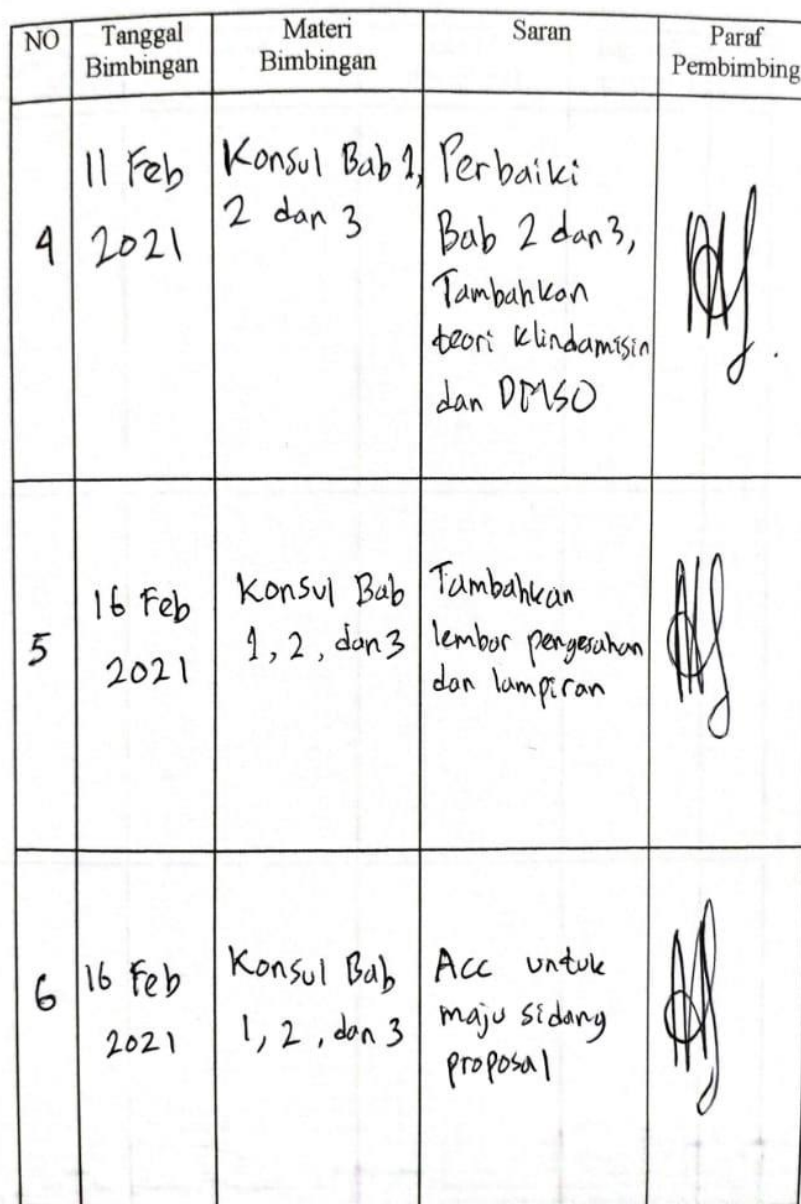 NO Tanggal Bimbingan Materi Bimbingan Saran Paraf Pembimbing
4 11 Feb 2021 Konsul Bab 1, 2 dan 3 Perbaiki Bab 2 dan 3, Tambahkan teori Klindamisin dan DMSO
5 16 Feb 2021 Konsul Bab 1, 2, dan 3 Tambahkan lembar pengesahan dan lampiran
6 16 Feb 2021 Konsul Bab 1, 2, dan 3 Acc untuk maju sidang proposal